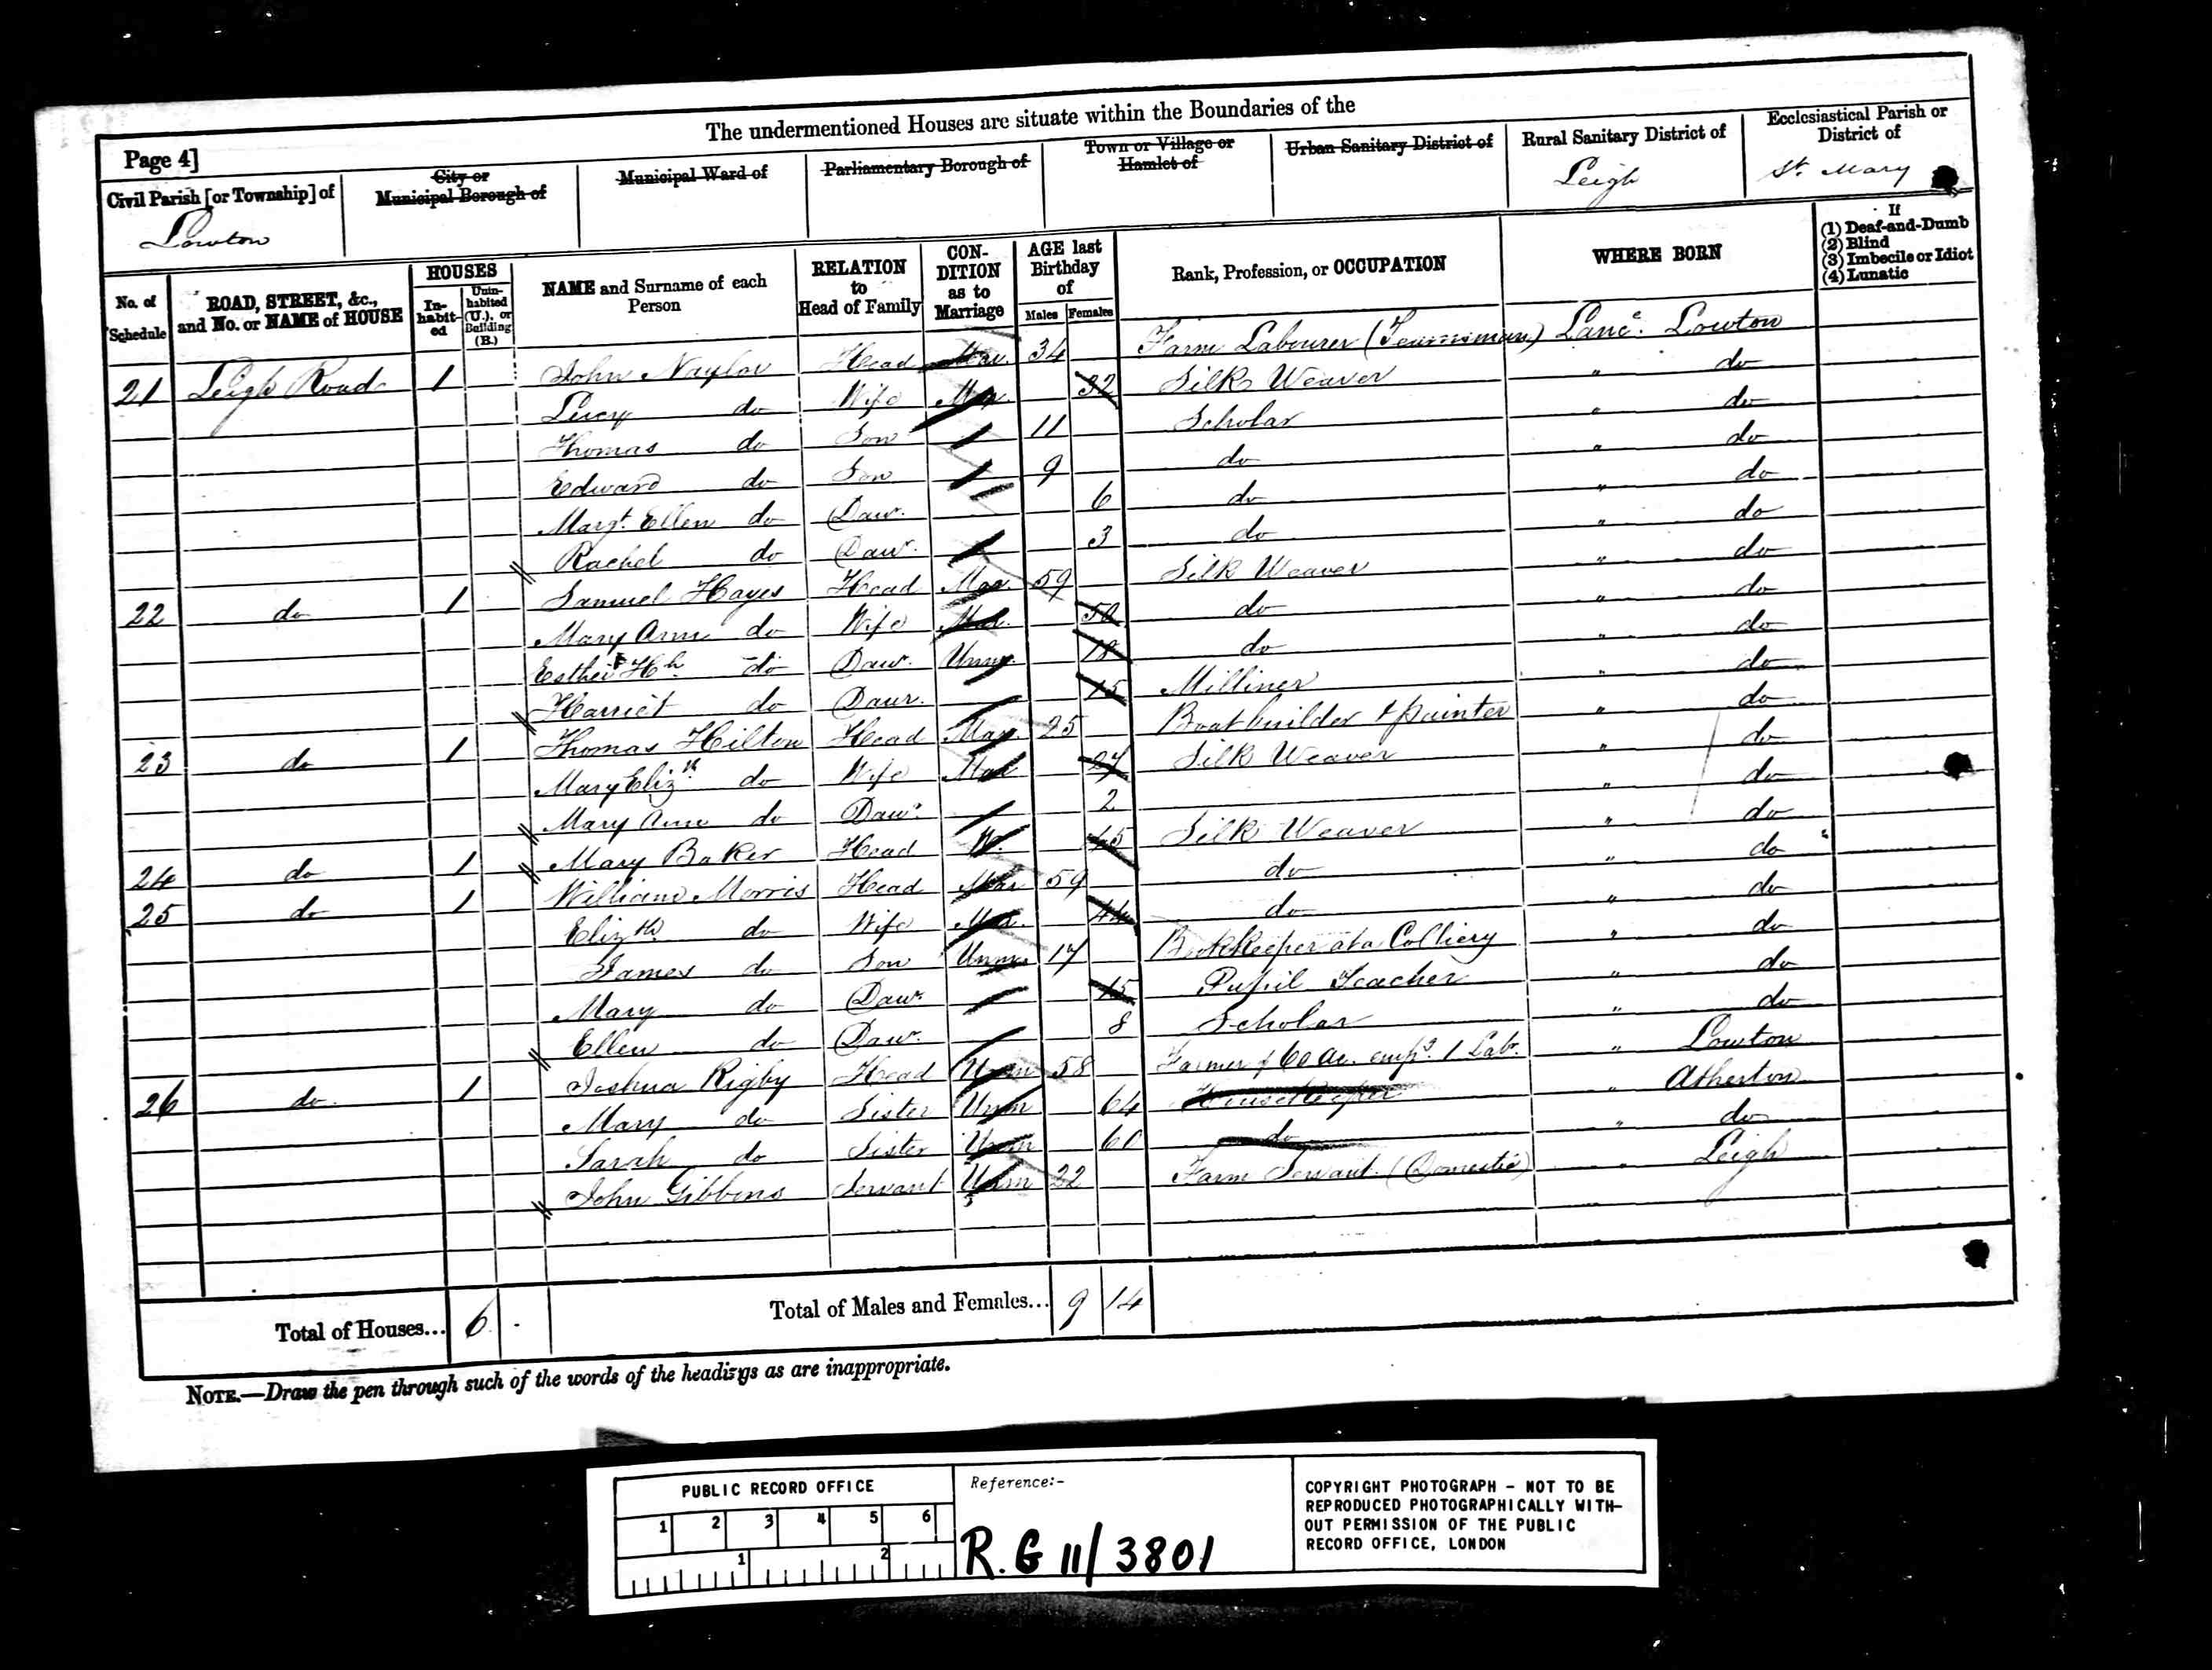 The undermentioned Houses are situate within the Boundaries of the
Page 4]
Civil Parish [or Township] of
Lowton
City or
Municipal Borough of
Municipal Ward of
Parliamentary Borough of
Town or Village or
Hamlet of
Urban Sanitary District of
Rural Sanitary District of
Leigh
Ecclesiastical Parish or
District of
St. Mary
No. of
Schedule
ROAD, STREET, &c.,
and No. or NAME of HOUSE
HOUSES
In-
habit-
ed
Unin-
habited
(U.), or
Building
(B.)
NAME and Surname of each
Person
RELATION
to
Head of Family
CON-
DITION
as to
Marriage
AGE last
Birthday
of
Males
Females
Rank, Profession, or OCCUPATION
WHERE BORN
If
(1) Deaf-and-Dumb
(2) Blind
(3) Imbecile or Idiot
(4) Lunatic
21 Leigh Road 1 John Naylor Head Mar. 34 Farm Labourer (Teamsman) Lanc. Lowton
Lucy do Wife Mar. 32 Silk Weaver " do
Thomas do Son 11 Scholar " do
Edward do Son 9 do " do
Margt. Ellen do Daur. 6 do " do
Rachel do Daur. 3 do " do
22 do 1 Samuel Hayes Head Mar. 59 Silk Weaver " do
Mary Ann do Wife Mar. 50 do " do
Esther Hh. do Daur. Unm. 18 do " do
Harriet do Daur. 15 Milliner " do
23 do 1 Thomas Hilton Head Mar. 25 Boatbuilder & painter " do
Mary Elizth do Wife Mar 27 Silk Weaver " do
Mary Ann do Daur. 2 " do
24 do 1 Mary Baker Head W. 45 Silk Weaver " do
25 do 1 William Morris Head Mar 59 do " do
Elizth. do Wife Mar. 44 do " do
James do Son Unm 17 Bookkeeper at a Colliery " do
Mary do Daur. 15 Pupil Teacher " do
Ellen do Daur. 8 Scholar " do
26 do 1 Joshua Rigby Head Unm 58 Farmer of 60 Ac. empg. 1 Lab. " Lowton
Mary do Sister Unm 64 Housekeeper " Atherton
Sarah do Sister Unm 60 do " do
John Gibbons Servant Unm 22 Farm Servant (Domestic) " Leigh
Total of Houses... 6 -
Total of Males and Females... 9 14
NOTE.—Draw the pen through such of the words of the headings as are inappropriate.
PUBLIC RECORD OFFICE
1 2 3 4 5 6
1 2
Reference:-
R.G 11/3801
COPYRIGHT PHOTOGRAPH – NOT TO BE
REPRODUCED PHOTOGRAPHICALLY WITH-
OUT PERMISSION OF THE PUBLIC
RECORD OFFICE, LONDON